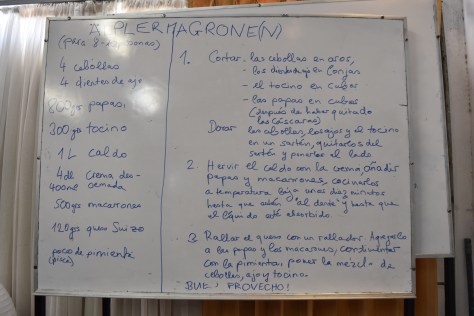 ÄPLERMAGRONE(N)
4 cebollas
4 dientes de ajo
papas
300grs tocino
1 L caldo
4dl crema des-
400ml cremada
500grs macarrones
120grs queso Suizo
poco de pimienta
1. Cortar - las cebollas en aros,
- los dientes de ajo en lonjas
- el tocino en cubos
- las papas en cubos
(después de haber quitado
las cáscaras)
Dorar las cebollas, los ajos y el tocino
en un sartén, quitarlos del
sartén y ponerlos al lado
2. Hervir el caldo con la crema, añadir
papas y macarrones, cocinarlos
a temperatura baja unos diez minutos
hasta que estén "al dente" y hasta que
el líquido esté absorbido.
3. Rallar el queso con un rallador. Agregarlo
a las papas y los macarrones, condimentar
con la pimienta, poner la mezcla de
cebollas, ajo y tocino.
PROVECHO!